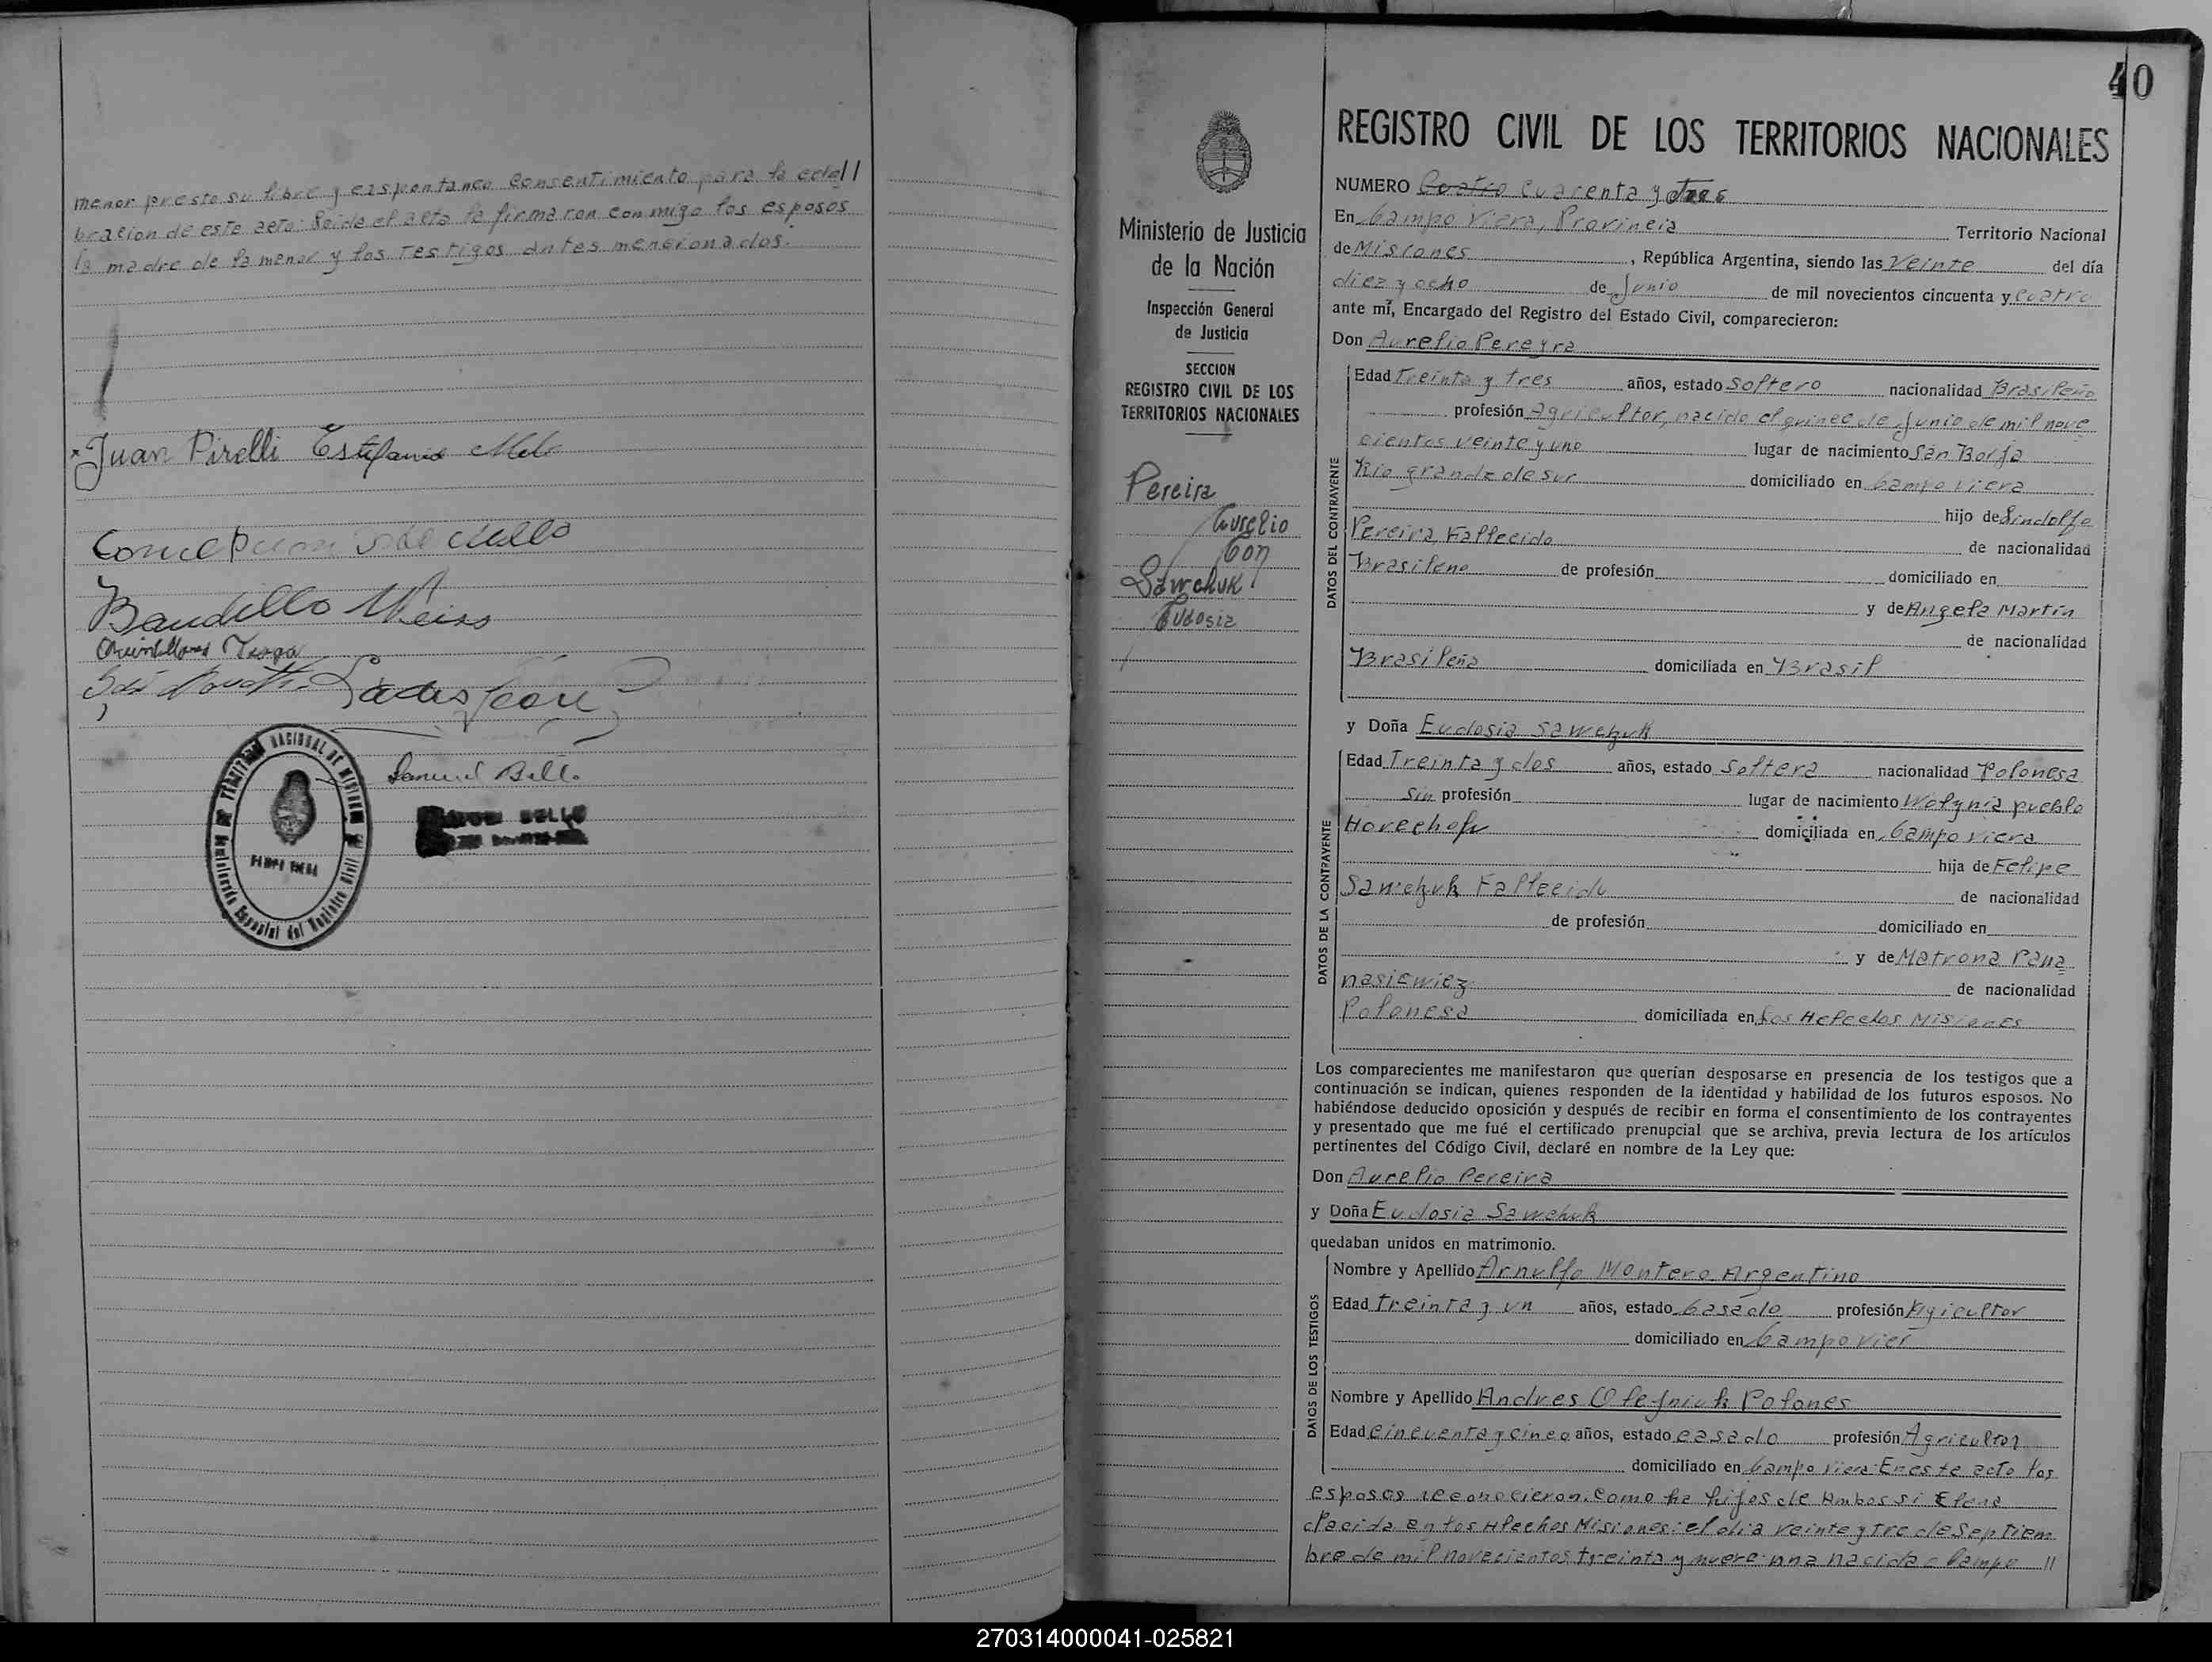 menor presto su libre y esspontaneo Consentimiento para la cele//
bracion de este acto: Leida el acta la firmaron conmigo los esposos
la madre de la menor y los Testigos antes mencionados.
Juan Pirelli Estefania Melo
Concepcion de Mello
Baudillo Weiss
Samuel Bello
CAMPO VIERA
40
REGISTRO CIVIL DE LOS TERRITORIOS NACIONALES
NUMERO Cuatro Cuarenta y Tres
En Campo Viera, Provincia Territorio Nacional
de Misiones, República Argentina, siendo las Veinte del día
diez y ocho de Junio de mil novecientos cincuenta y cuatro
ante mí, Encargado del Registro del Estado Civil, comparecieron:
Don Aurelio Pereyra
Ministerio de Justicia
de la Nación
Inspección General
de Justicia
SECCION
REGISTRO CIVIL DE LOS
TERRITORIOS NACIONALES
Pereira
Aurelio
Con
Sawchuk
Eudosia
DATOS DEL CONTRAYENTE
Edad Treinta y tres años, estado Soltero nacionalidad Brasileño
profesión Agricultor, nacido el quince de Junio de mil nove
cientos veinte y uno lugar de nacimiento San Borja
Rio grande de sur domiciliado en Campo Viera
hijo de Lindolfo
Pereira Fallecido de nacionalidad
Brasileno de profesión domiciliado en
y de Angela Martin
de nacionalidad
Brasileña domiciliada en Brasil
y Doña Eudosia Sawchuk
DATOS DE LA CONTRAYENTE
Edad Treinta y dos años, estado Soltera nacionalidad Polonesa
Sin profesión lugar de nacimiento Wolynia pueblo
Horechow domiciliada en Campo Viera
hija de Felipe
Sawchuk Fallecido de nacionalidad
de profesión domiciliado en
y de Matrona Pana
nasiewicz de nacionalidad
Polonesa domiciliada en Los Helechos Misiones
Los comparecientes me manifestaron que querían desposarse en presencia de los testigos que a
continuación se indican, quienes responden de la identidad y habilidad de los futuros esposos. No
habiéndose deducido oposición y después de recibir en forma el consentimiento de los contrayentes
y presentado que me fué el certificado prenupcial que se archiva, previa lectura de los artículos
pertinentes del Código Civil, declaré en nombre de la Ley que:
Don Aurelio Pereira
y Doña Eudosia Sawchuk
quedaban unidos en matrimonio.
DATOS DE LOS TESTIGOS
Nombre y Apellido Arnulfo Montero Argentino
Edad treinta y un años, estado Casado profesión Agicultor
domiciliado en Campo Vier
Nombre y Apellido Andres Olejniuk Polones
Edad Cincuenta y cinco años, estado casado profesión Agricultor
domiciliado en Campo Viera: En este acto los
esposos reconocieron. Como ha hijos de Ambos si Elena
clacida en los Hlechos Misiones: el dia veinte y tre de Septiem
bre de mil novecientos treinta y nueve: Ana nacida Campo //
270314000041-025821